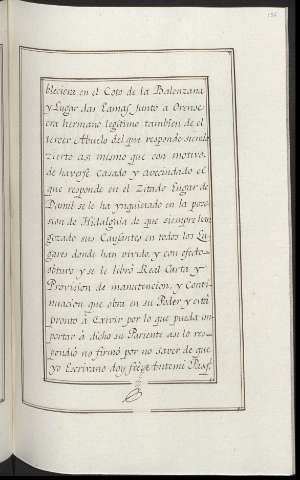 blecieze en el Coto de la Balenzana
y Lugar das Lamas junto a Orense
era hermano legitimo tambien de el
tercer Abuelo del que responde siendo
zierto asi mismo que con motivo
de haverse Casado y avecindado el
que responde en el Zitado Lugar de
se le ha ynquietado en la pose-
sion de Hidalguia de que siempre han
gozado sus Causantes en todos los Lu-
gares donde han vivido, y con efecto
obtuvo y se le libró Real Carta y
Provision de manutencion, y Conti-
nuacion que obra en su Poder y está
pronto â Exivir por lo que pueda im-
portar â dicho su Pariente asi lo res-
pondió no firmó por no saver de que
yo Escrivano doy fée Antemi